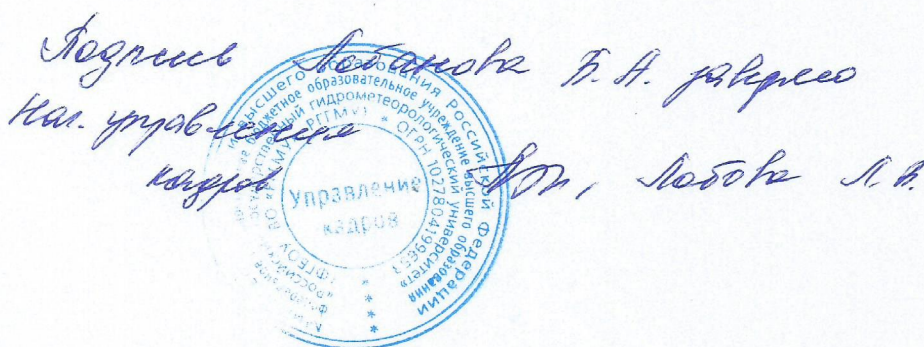 Подпись Лобанова В.А. заверяю
Нач. управления
кадров Лобова Л.В.
высшего образования Российской Федерации
бюджетное образовательное учреждение высшего образования
государственный гидрометеорологический университет»
РГГМУ) * ОГРН 1027804199653
(ФГБОУ
«Российский
Управление
кадров